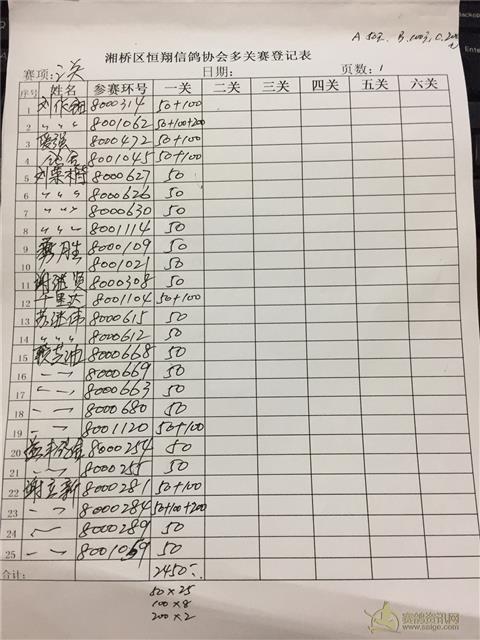 A 50元 B.100元, C.200元
湘桥区恒翔信鸽协会多关赛登记表
赛项: 三关 日期: 页数: 1
序号 姓名 参赛环号 一关 二关 三关 四关 五关 六关
1 8000314 50+100
2 〃 〃 〃 8001062 50+100+200
3 8000472 50+100
4 8001045 50+100
5 8000627 50
6 〃 〃 〃 8000626 50
7 〃 〃 〃 8000630 50
8 〃 〃 〃 8001114 50
9 胜 8000109 50
10 8001021 50
11 谢继贤 8000308 50
12 千里达 8001104 50+100
13 苏继伟 8000615 50
14 〃 〃 〃 8000612 50
15 8000668 50
16 8000669 50
17 8000663 50
18 8000680 50
19 8001120 50+100
20 8000254 50
21 8000255 50
22 谢立新 8000281 50+100
23 8000284 50+100+200
24 8000289 50
25 8001059 50
合计: 2450
50×25
100×8
200×2
赛鸽资讯网
www.saige.com